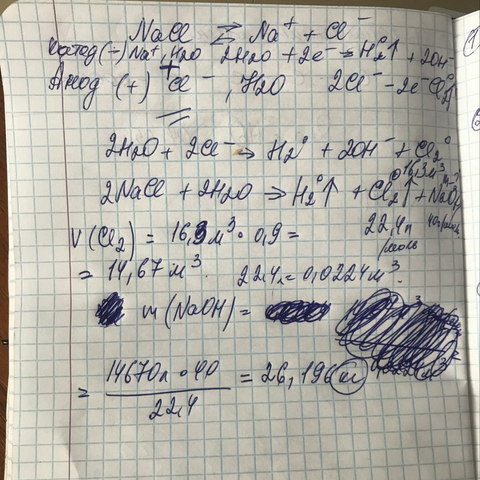 NaCl ⇄ Na⁺ + Cl⁻
Катод (−) Na⁺, H2O 2H2O + 2e⁻ → H2⁰↑ + 2OH⁻
Анод (+) Cl⁻, H2O 2Cl⁻ − 2e⁻ Cl2⁰↑
2H2O + 2Cl⁻ → H2⁰ + 2OH⁻ + Cl2⁰
16,3 м³
2NaCl + 2H2O → H2⁰↑ + Cl2⁰↑ + NaOH
22,4л
V(Cl2) = 16,3 м³ · 0,9 =
= 14,67 м³. 22,4л = 0,0224 м³.
m(NaOH) =
= 14670л · 40 / 22,4 = 26,196 кг